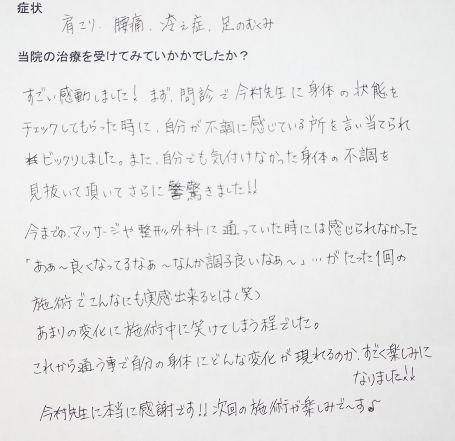 症状
肩こり、腰痛、冷え症、足のむくみ
当院の治療を受けてみていかかでしたか?
すごい感動しました! まず、問診で今村先生に身体の状態を
チェックしてもらった時に、自分が不調に感じている所を言い当てられ
ビックリしました。また、自分でも気付けなかった身体の不調を
見抜いて頂いてさらに驚きました!!
今までの、マッサージや整形外科に通っていた時には感じられなかった
「あぁ〜良くなってるなぁ〜なんか調子良いなぁ〜」…がたった1回の
施術でこんなにも実感出来るとは(笑)
あまりの変化に施術中に笑けてしまう程でした。
これから通う事で自分の身体にどんな変化が現れるのか、すごく楽しみに
なりました!!
今村先生に本当に感謝です!! 次回の施術が楽しみで〜す♪